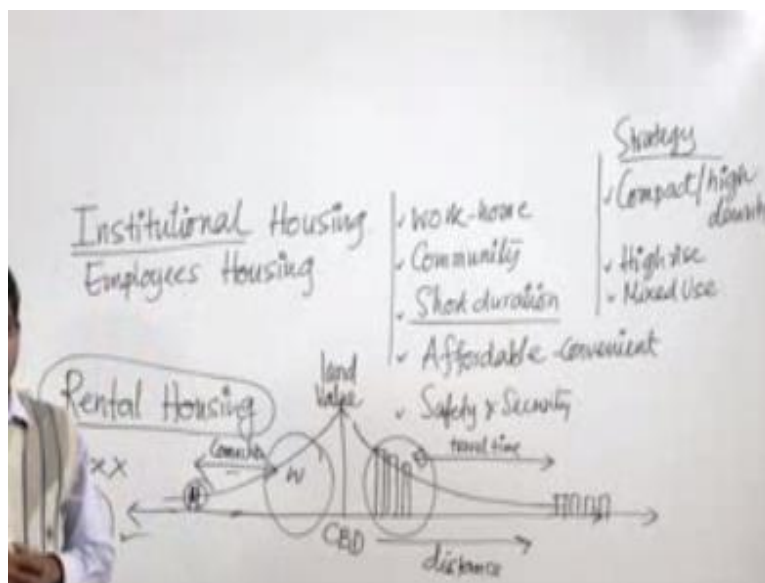 Institutional Housing
Employees Housing
Rental Housing
work-home
Community
Short duration
Affordable-Convenient
Safety & Security
Strategy
Compact/high
High rise
Mixed Use
land
Value
travel time
W
H
XX
CBD
distance